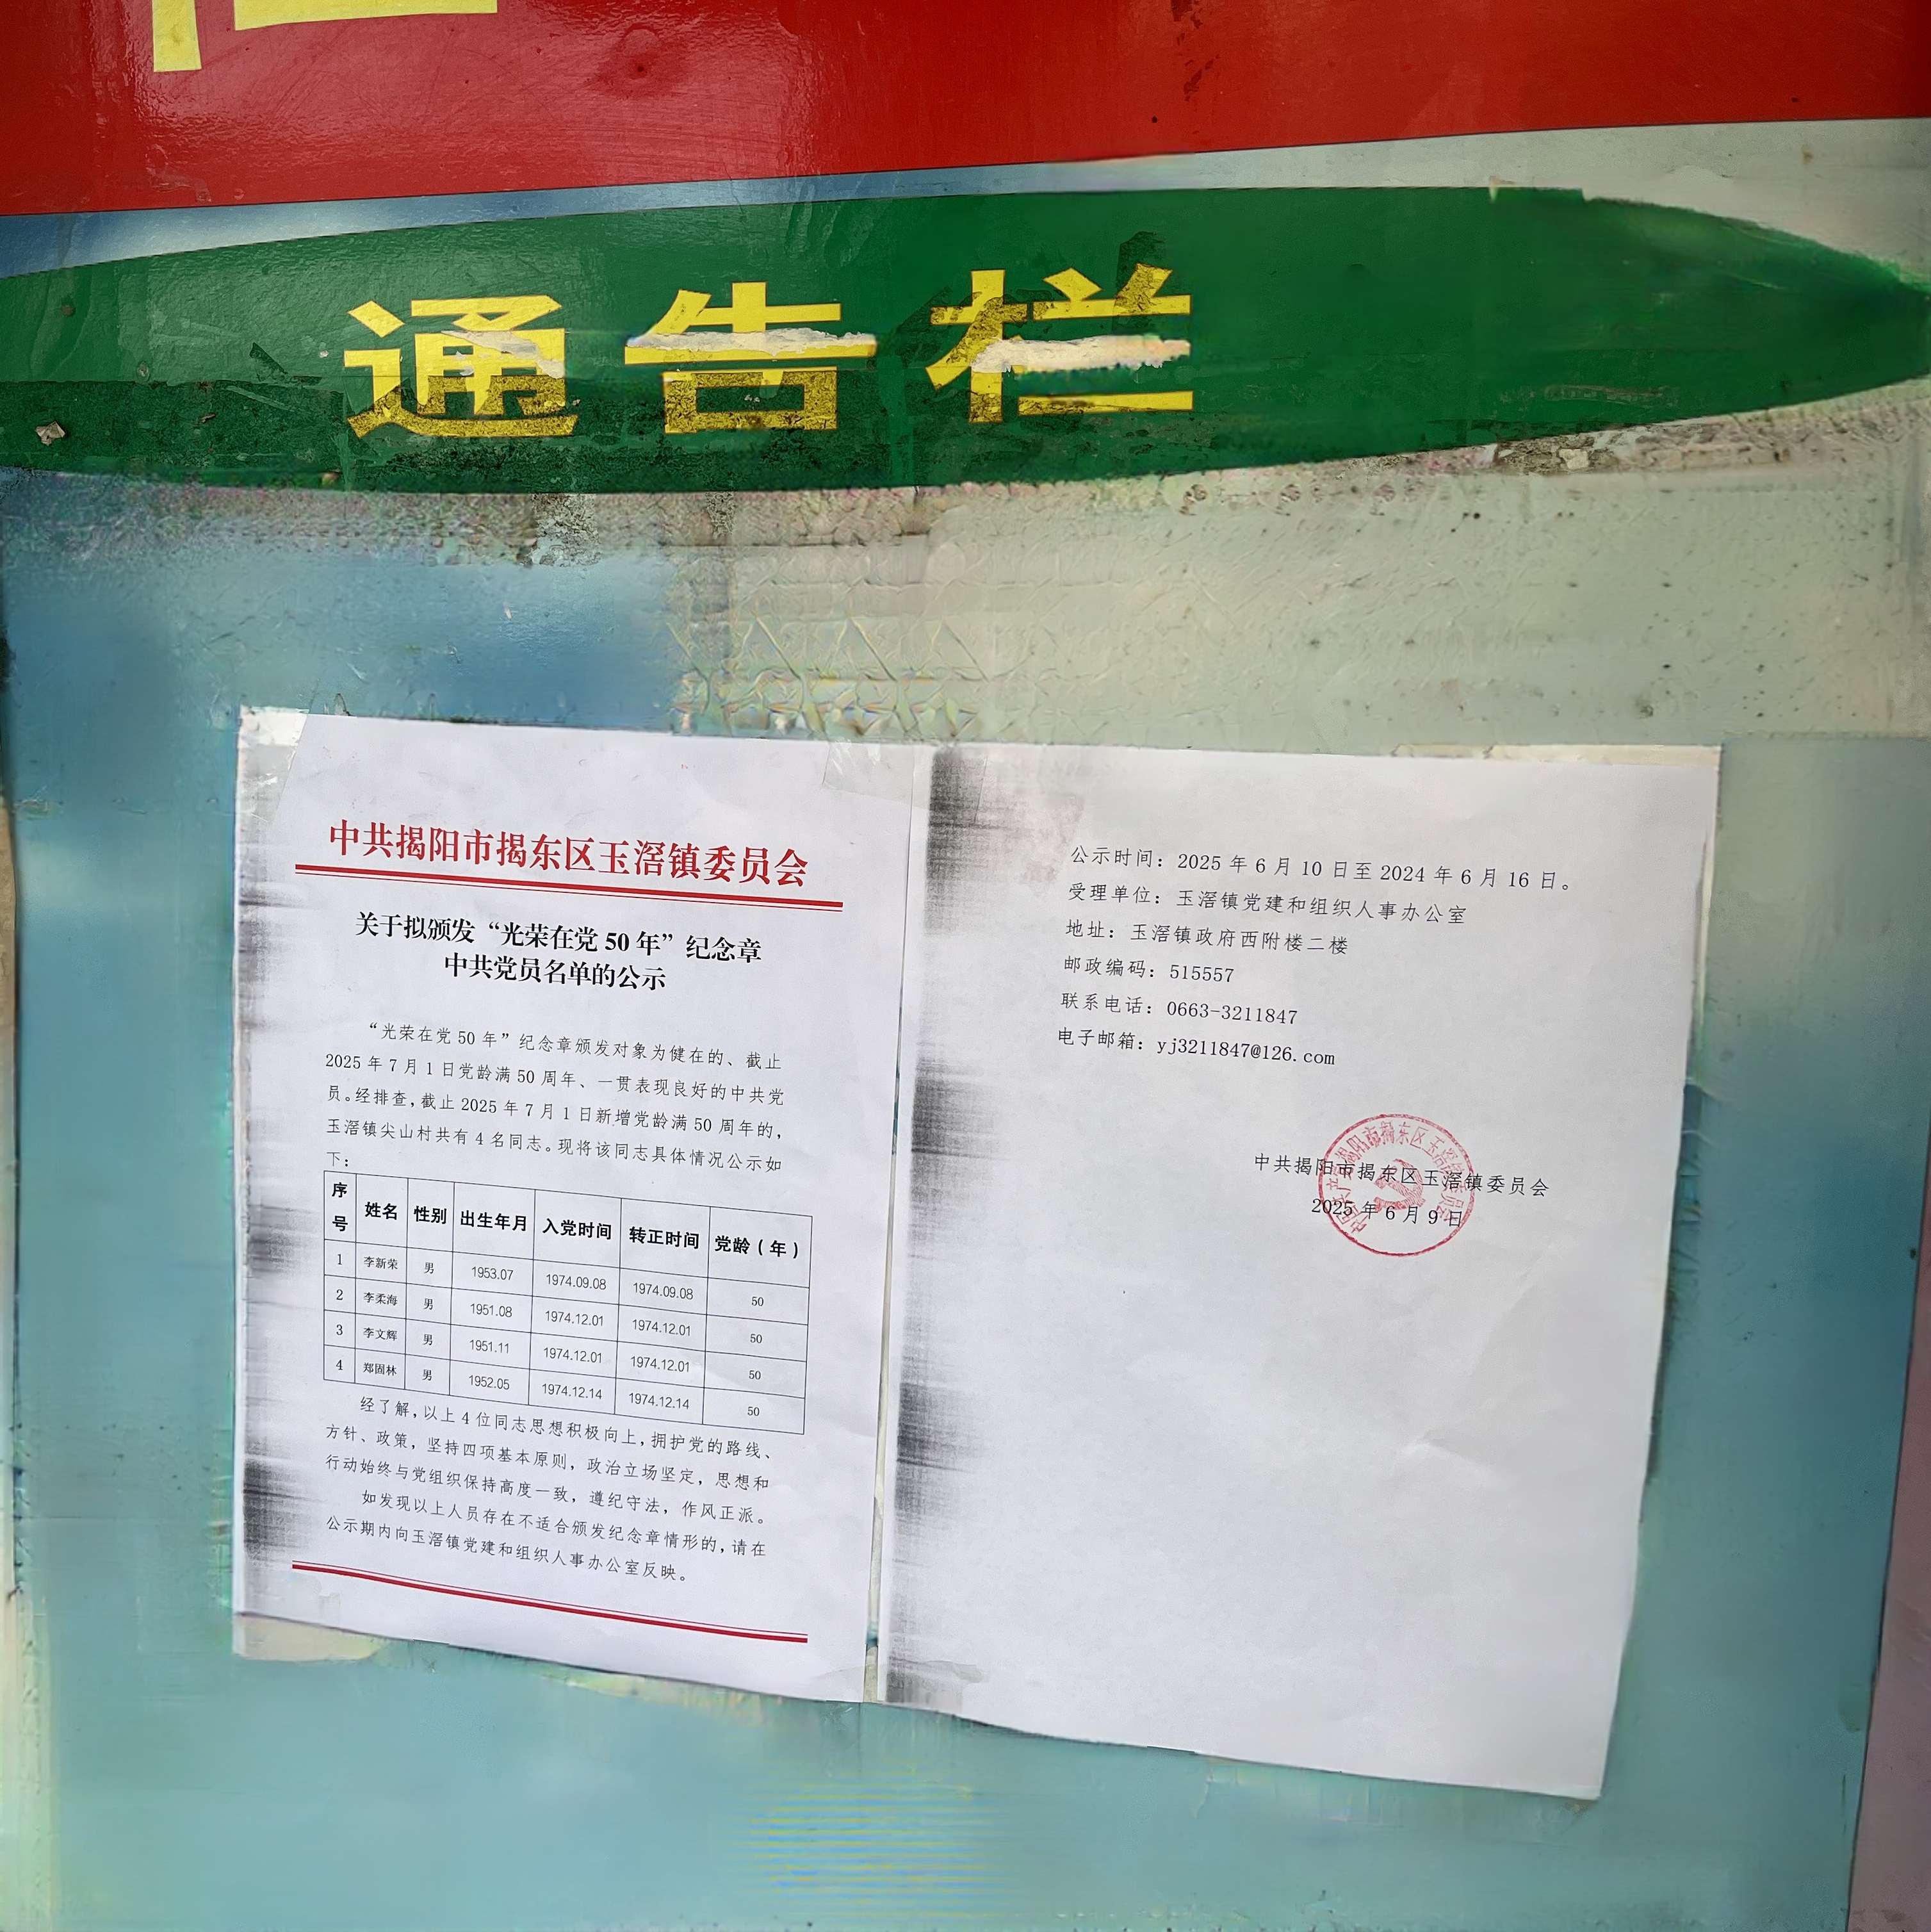 通告栏
中共揭阳市揭东区玉滘镇委员会
关于拟颁发“光荣在党 50 年”纪念章
中共党员名单的公示
“光荣在党 50 年”纪念章颁发对象为健在的、截止
2025 年 7 月 1 日党龄满 50 周年、一贯表现良好的中共党
员。经排查,截止 2025 年 7 月 1 日新增党龄满 50 周年的,
玉滘镇尖山村共有 4 名同志。现将该同志具体情况公示如
下:
序号 姓名 性别 出生年月 入党时间 转正时间 党龄（年）
1 李新荣 男 1953.07 1974.09.08 1974.09.08 50
2 李柔海 男 1951.08 1974.12.01 1974.12.01 50
3 李文辉 男 1951.11 1974.12.01 1974.12.01 50
4 郑固林 男 1952.05 1974.12.14 1974.12.14 50
经了解,以上 4 位同志思想积极向上,拥护党的路线、
方针、政策，坚持四项基本原则，政治立场坚定，思想和
行动始终与党组织保持高度一致，遵纪守法，作风正派。
如发现以上人员存在不适合颁发纪念章情形的,请在
公示期内向玉滘镇党建和组织人事办公室反映。
公示时间: 2025 年 6 月 10 日至 2024 年 6 月 16 日。
受理单位: 玉滘镇党建和组织人事办公室
地址: 玉滘镇政府西附楼二楼
邮政编码: 515557
联系电话: 0663-3211847
电子邮箱: yj3211847@126.com
中共揭阳市揭东区玉滘镇委员会
2025 年 6 月 9 日